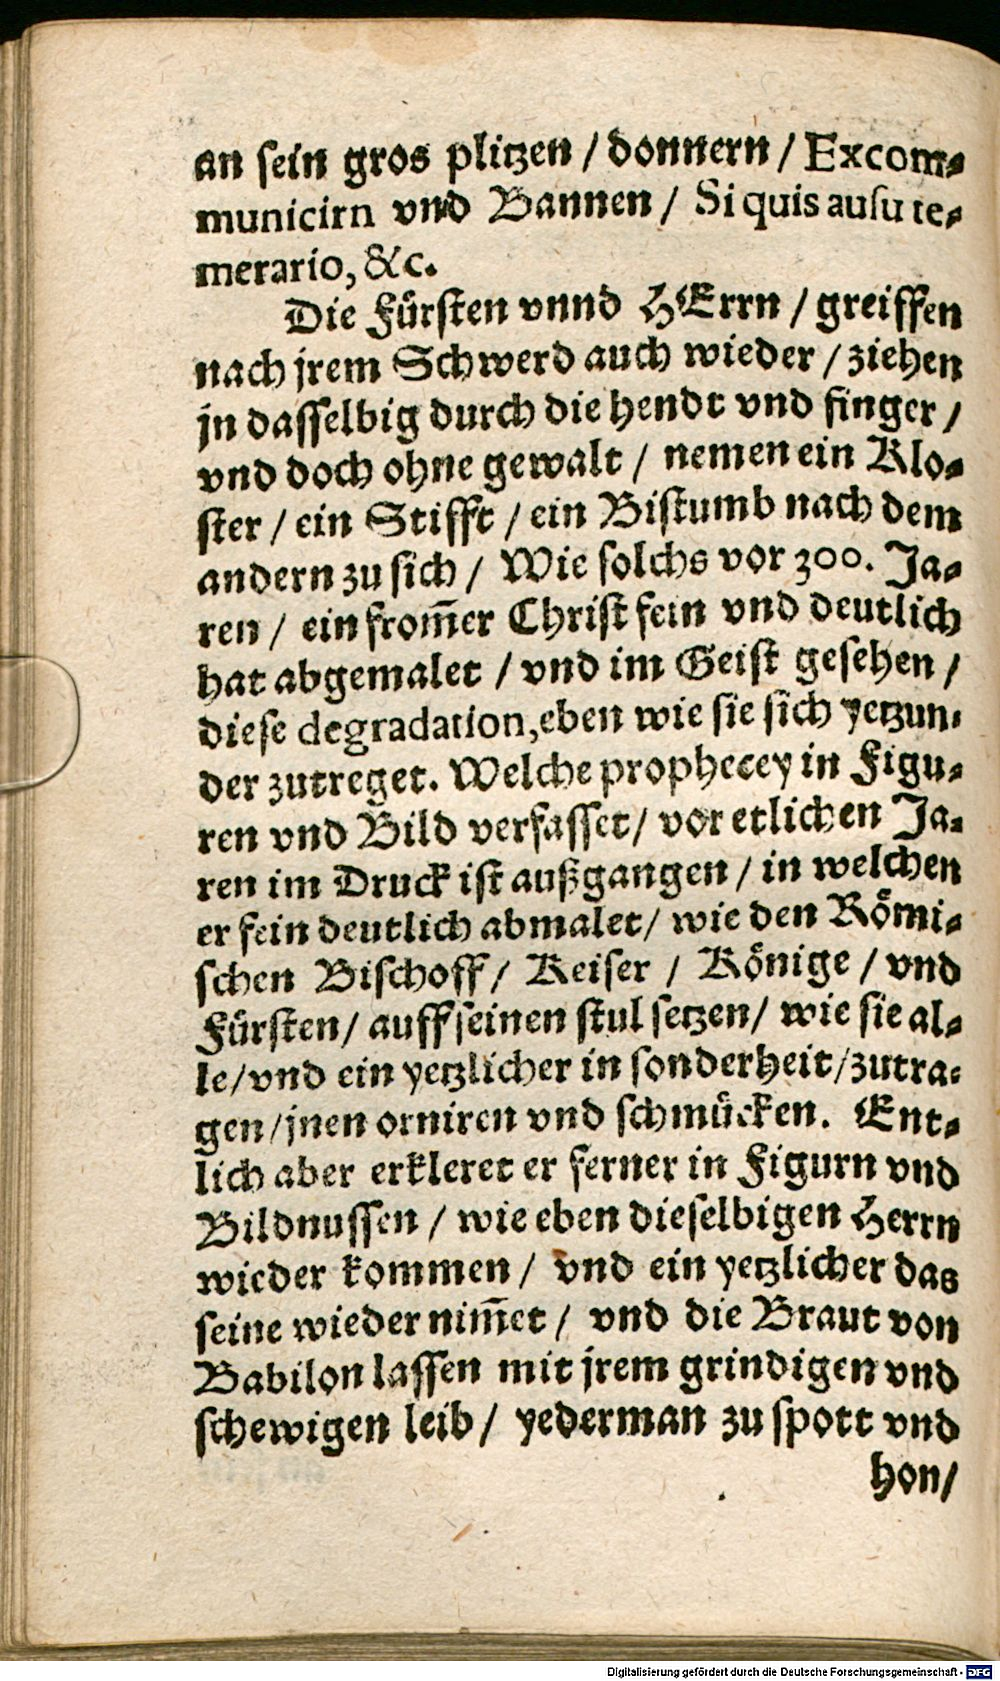 an sein gros plitzen / donnern / Excom-
municirn vnd Bannen / Si quis ausu te-
merario, &c.
Die Fürsten vnnd HErrn / greiffen
nach jrem Schwerd auch wieder / ziehen
jn dasselbig durch die hendt vnd finger /
vnd doch ohne gewalt / nemen ein Klo-
ster / ein Stifft / ein Bistumb nach dem
andern zu sich / Wie solchs vor 300. Ja-
ren / ein from̄er Christ fein vnd deutlich
hat abgemalet / vnd im Geist gesehen /
diese degradation, eben wie sie sich yetzun-
der zutreget. Welche prophecey in Figu-
ren vnd Bild verfasset / vor etlichen Ja-
ren im Druck ist außgangen / in welchen
er fein deutlich abmalet / wie den Römi-
schen Bischoff / Keiser / Könige / vnd
Fürsten / auff seinen stul setzen / wie sie al-
le / vnd ein yetzlicher in sonderheit / zutra-
gen / jnen orniren vnd schmücken. Ent-
lich aber erkleret er ferner in Figurn vnd
Bildnussen / wie eben dieselbigen Herrn
wieder kommen / vnd ein yetzlicher das
seine wieder nim̄et / vnd die Braut von
Babilon lassen mit jrem grindigen vnd
schewigen leib / yederman zu spott vnd
hon /
Digitalisierung gefördert durch die Deutsche Forschungsgemeinschaft - DFG